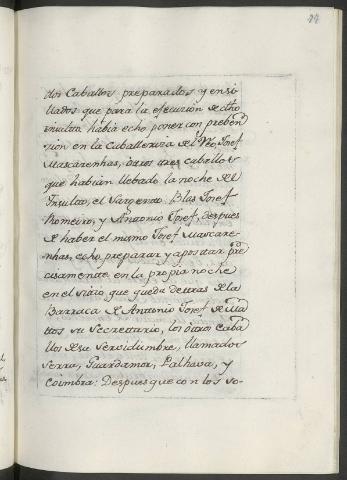 dos Caballos preparados, y ensi-
llados que para la ejecucion de dho
insulto, habia echo poner con preben-
sion en la Caballeriza del Reo, Josef
Mascarenhas, otros tres caballos
que habian llebado la noche del
Insulto, el Sargento Blas Josef
Romeiro, y Antonio Josef, despues
de haber el mismo Josef Mascare-
nhas, echo preparar y apostar pre-
cisamente en la propia noche
en el sitio que queda detras de la
Barraca de Antonio Josef de Ma-
tos su Secretario, los otros Caba-
llos de su Servidumbre, llamados
Serra, Guardamor, Palhava, y
Coimbra: Despues que con los so-